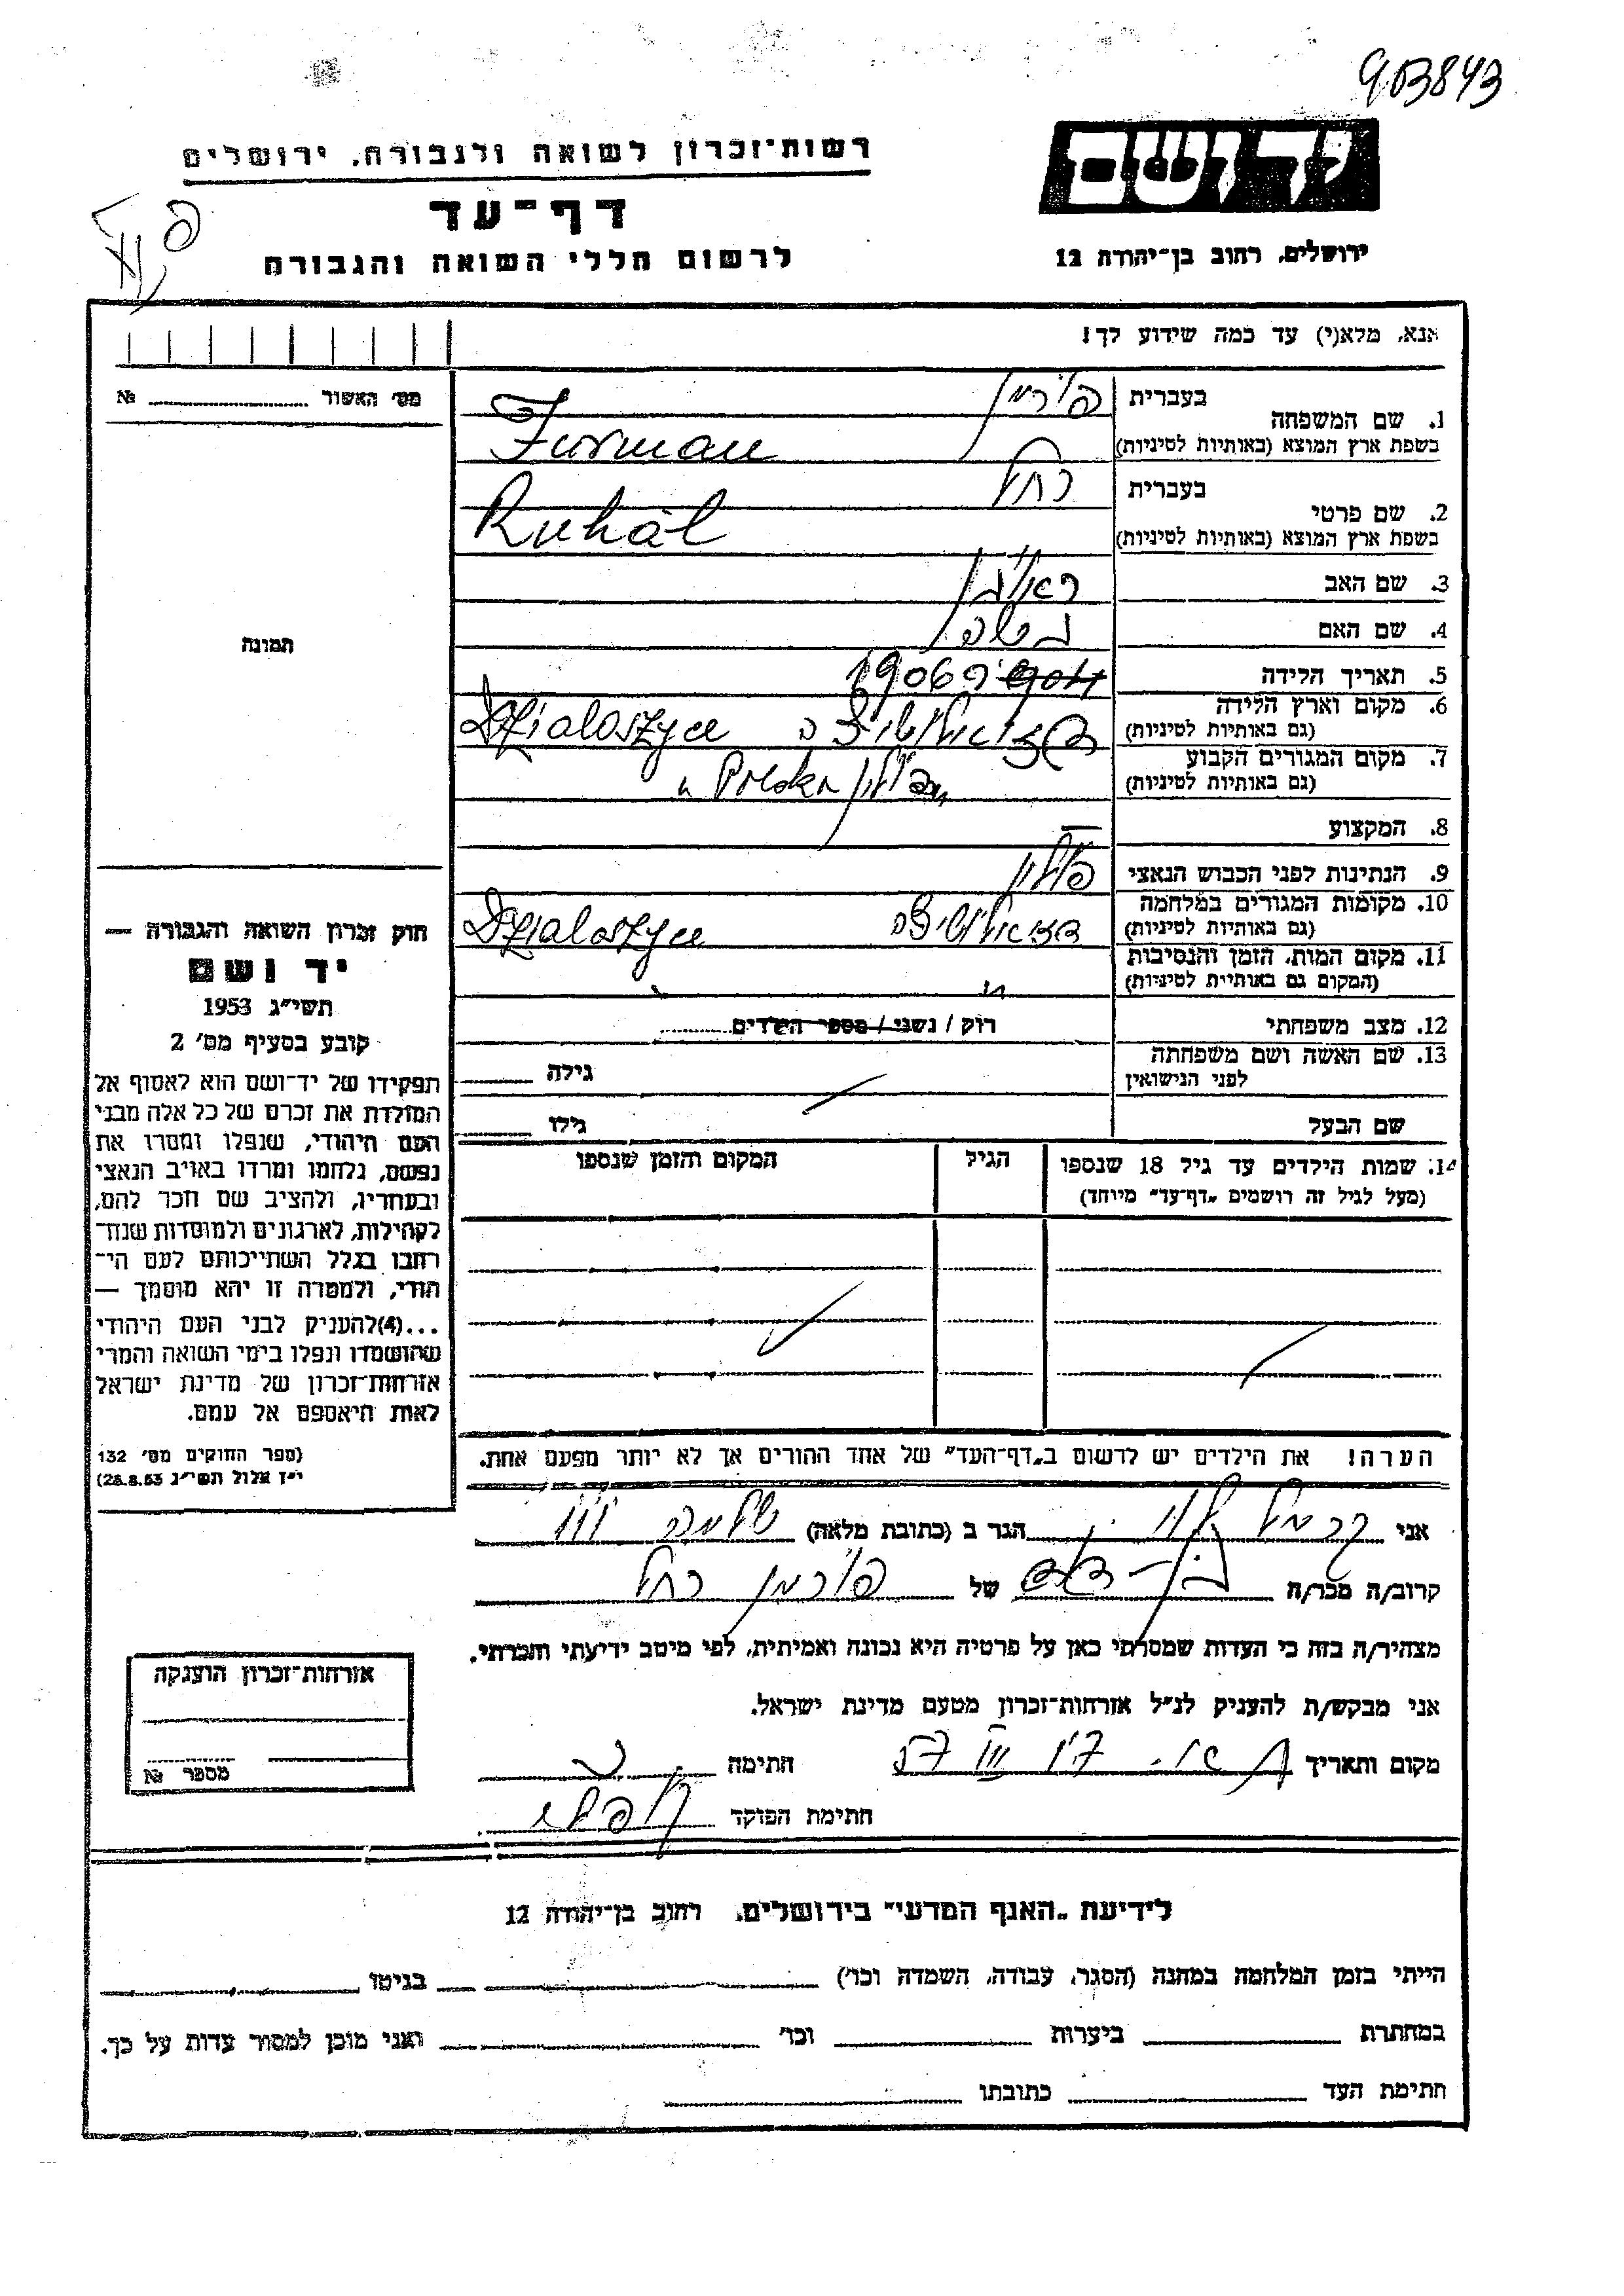 903843
רשות־זכרון לשואה ולגבורה, ירושלים
דף־עד
לרשום חללי השואה והגבורה
יד ושם
ירושלים, רחוב בן־יהודה 12
אנא, מלא(י) עד כמה שידוע לך!
מס׳ האשור № 
תמונה
1. שם המשפחה בעברית פורמן
בשפת ארץ המוצא (באותיות לטיניות) Furman
2. שם פרטי בעברית רחל
בשפת ארץ המוצא (באותיות לטיניות) Ruhal
3. שם האב ראובן
4. שם האם
5. תאריך הלידה 1906
6. מקום וארץ הלידה
(גם באותיות לטיניות) Dzialoszyce
7. מקום המגורים הקבוע
(גם באותיות לטיניות) פולין Polska
8. המקצוע —
9. הנתינות לפני הכבוש הנאצי פולין
10. מקומות המגורים במלחמה
(גם באותיות לטיניות) Dzialoszyce
11. מקום המות, הזמן והנסיבות
(המקום גם באותיות לטיניות)
12. מצב משפחתי רוק / נשוי / מספר הילדים
13. שם האשה ושם משפחתה
לפני הנישואין גילה
שם הבעל גילו
14. שמות הילדים עד גיל 18 שנספו הגיל המקום והזמן שנספו
(מעל לגיל זה רושמים „דף־עד״ מיוחד)
הערה! את הילדים יש לרשום ב„דף־העד״ של אחד ההורים אך לא יותר מפעם אחת.
חוק זכרון השואה והגבורה —
יד ושם
תשי״ג 1953
קובע בסעיף מס׳ 2
תפקידו של יד־ושם הוא לאסוף אל
המולדת את זכרם של כל אלה מבני
העם היהודי, שנפלו ומסרו את
נפשם, נלחמו ומרדו באויב הנאצי
ובעוזריו, ולהציב שם וזכר להם,
לקהילות, לארגונים ולמוסדות שנח־
רבו בגלל השתייכותם לעם הי־
הודי, ולמטרה זו יהא מוסמך —
...(4)להעניק לבני העם היהודי
שהושמדו ונפלו בימי השואה והמרי
אזרחות־זכרון של מדינת ישראל
לאות היאספם אל עמם.
(ספר החוקים מס׳ 132
י״ז אלול תשי״ג 28.8.53)
אני הגר ב (כתובת מלאה)
קרוב/ה מכר/ה של פורמן רחל
מצהיר/ה בזה כי העדות שמסרתי כאן על פרטיה היא נכונה ואמיתית, לפי מיטב ידיעתי והכרתי.
אני מבקש/ת להעניק לנ״ל אזרחות־זכרון מטעם מדינת ישראל.
מקום ותאריך חתימה
חתימת הפוקד
אזרחות־זכרון הוענקה
מספר №
לידיעת „האגף המדעי״ בירושלים, רחוב בן־יהודה 12
הייתי בזמן המלחמה במחנה (הסגר, עבודה, השמדה וכו׳) בגיטו
במחתרת ביערות וכו׳ ואני מוכן למסור עדות על כך.
חתימת העד כתובתו